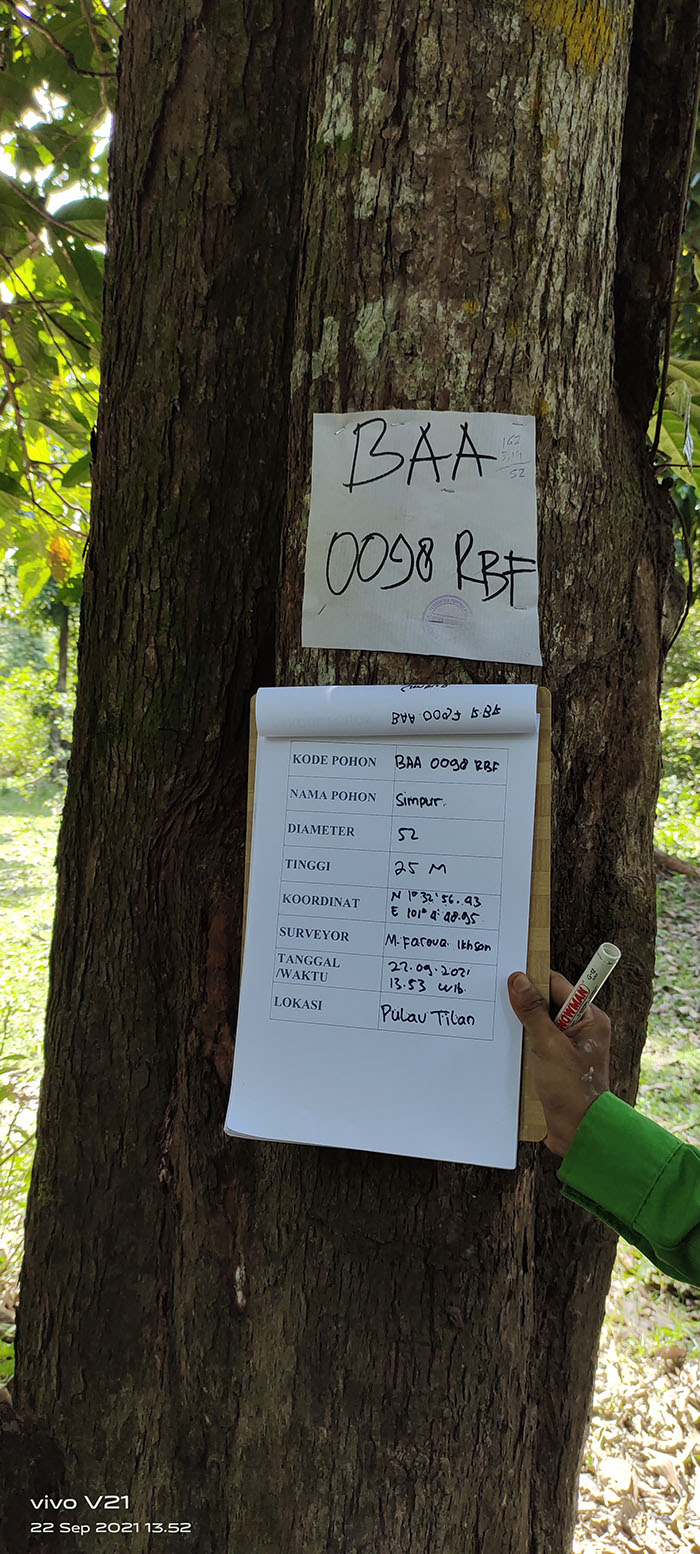 BAA
162
3,14
52
0098 RBF
BAA 0098 RBF
KODE POHON BAA 0098 RBF
NAMA POHON Simpur.
DIAMETER 52
TINGGI 25 M
KOORDINAT N 1° 32' 56..93
E 101° 4' 48.95
SURVEYOR M. Farova. Ikhson
TANGGAL 22.09.2021
/WAKTU 13.53 Wib.
LOKASI Pulau Tilan
SNOWMAN
vivo V21
22 Sep 2021 13.52